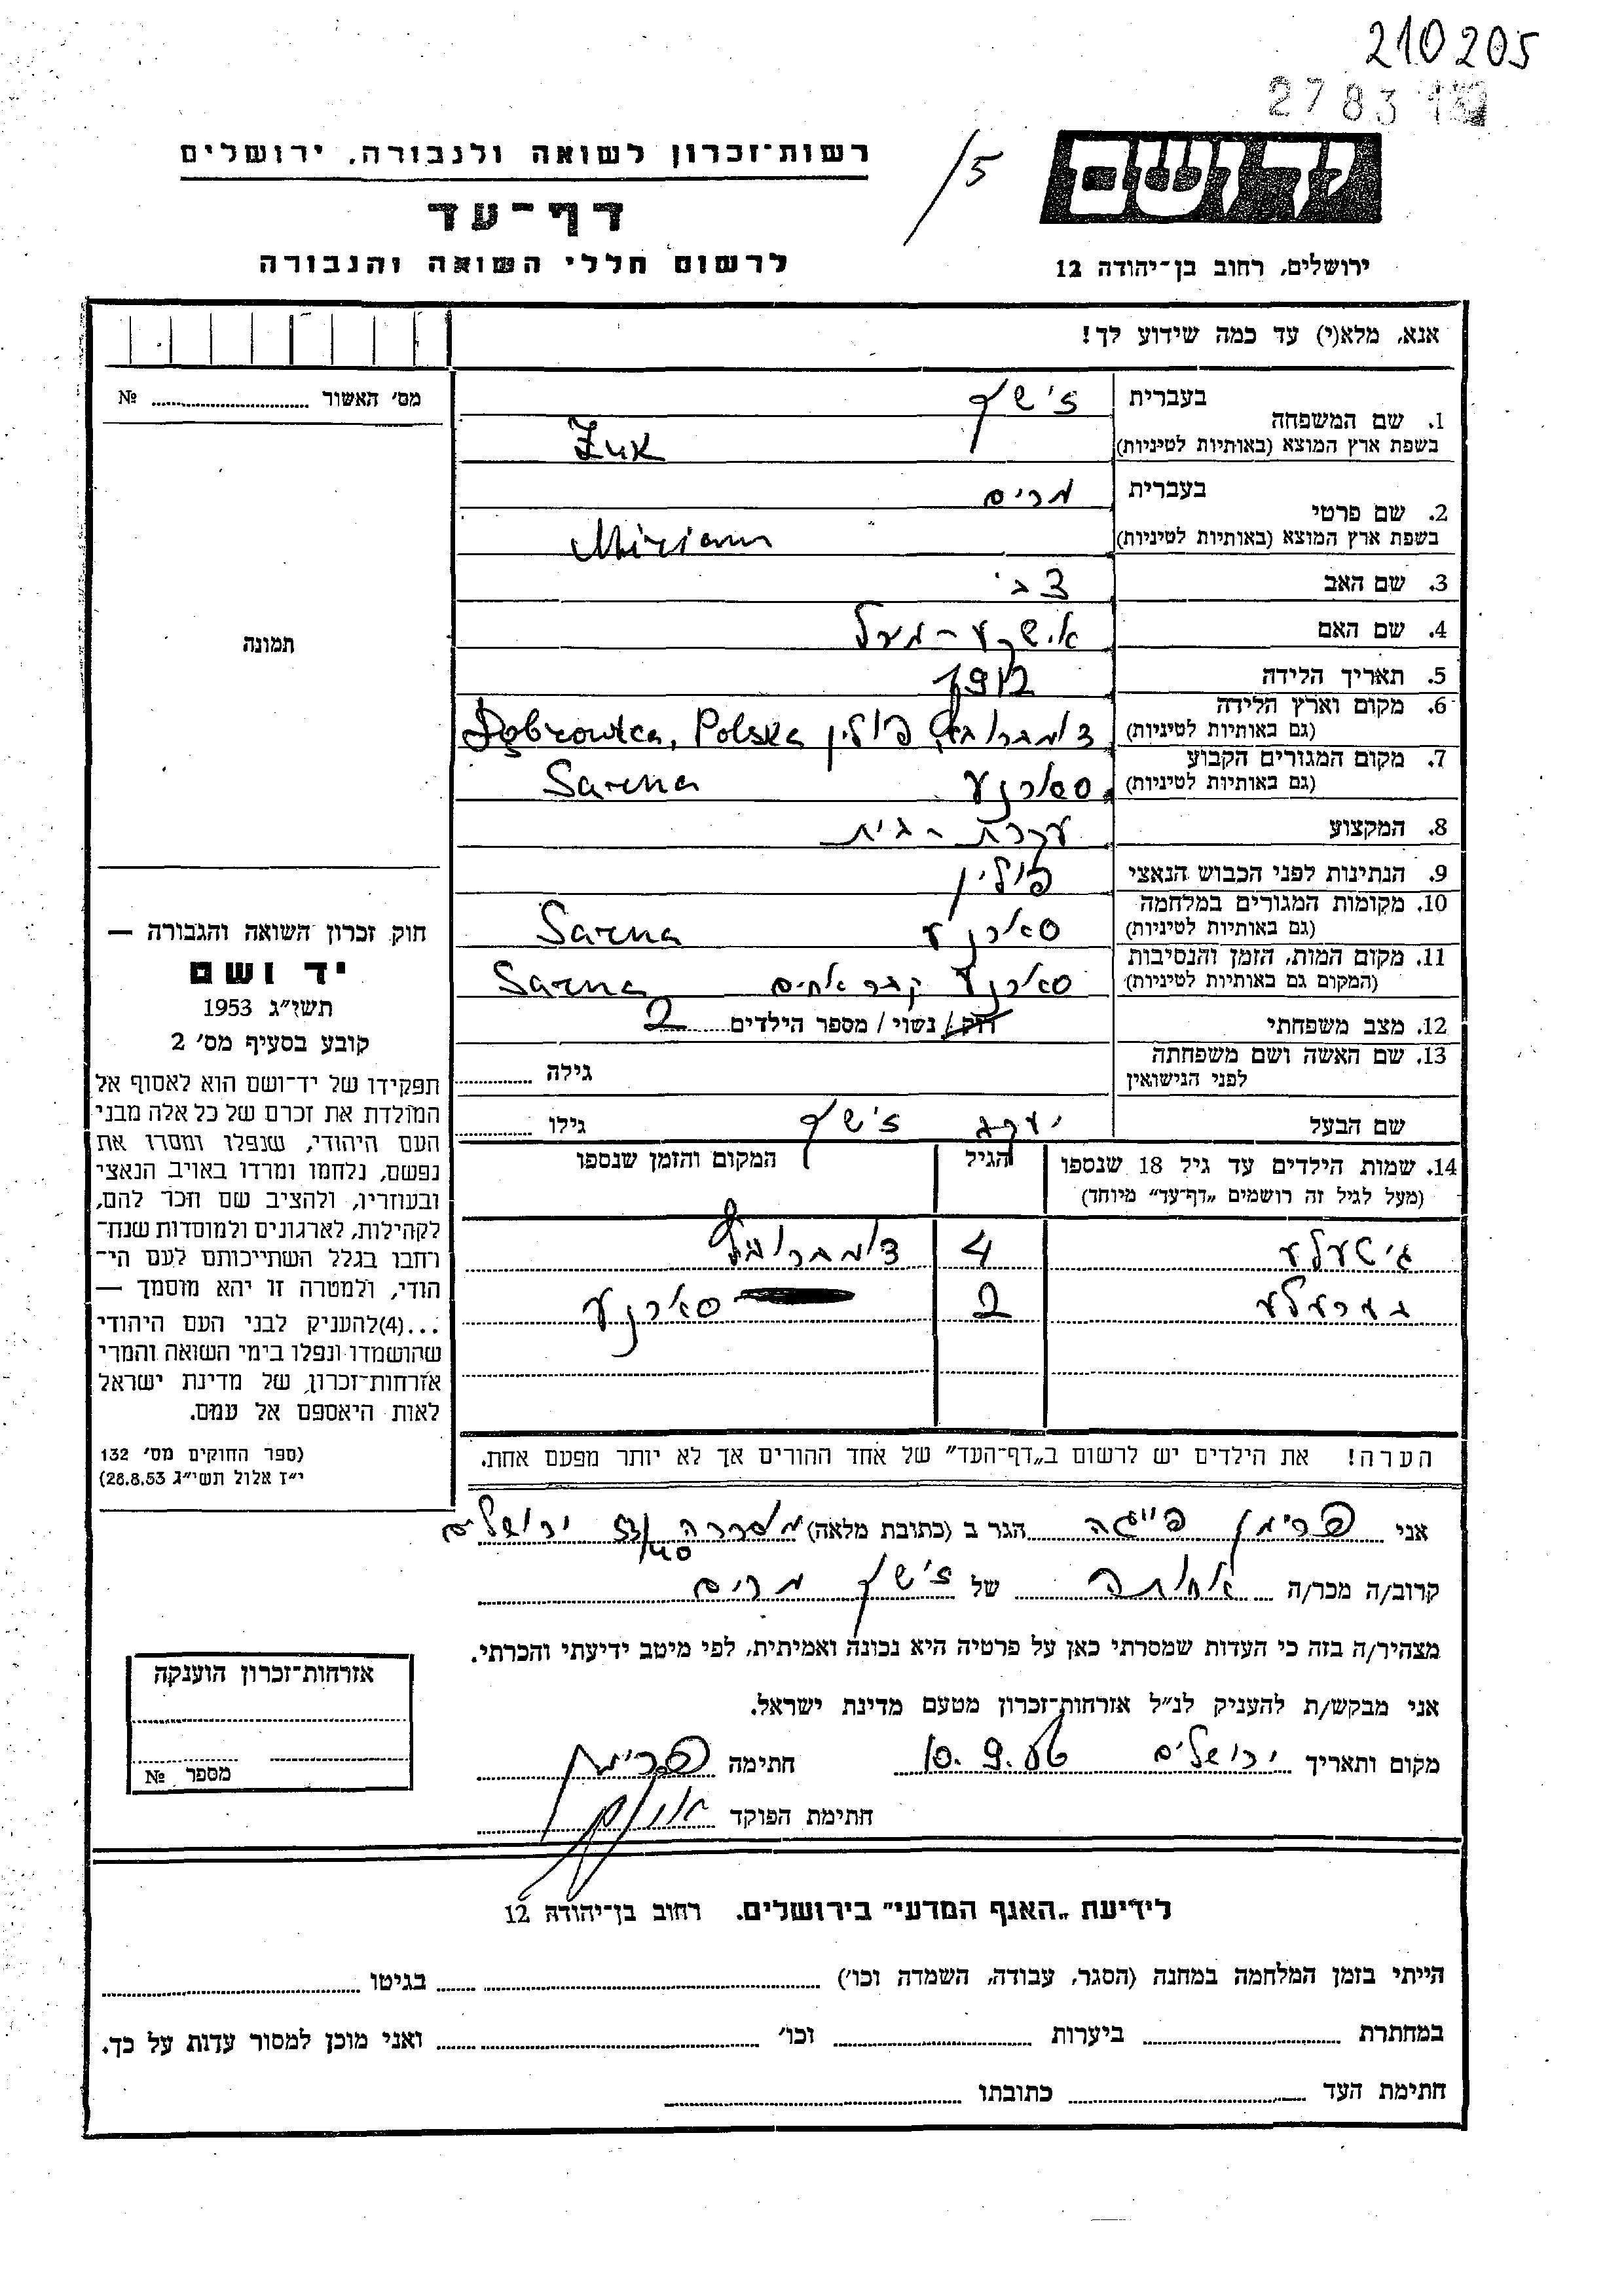 210205
278313
רשות־זכרון לשואה ולגבורה, ירושלים
/5
ידושם
דף־עד
לרשום חללי השואה והגבורה
ירושלים, רחוב בן־יהודה 12
אנא, מלא(י) עד כמה שידוע לך!
מס׳ האשור № 
תמונה
1. שם המשפחה
בעברית
בשפת ארץ המוצא (באותיות לטיניות)
Żuk
2. שם פרטי
בעברית מרים
בשפת ארץ המוצא (באותיות לטיניות) Miriam
3. שם האב צבי
4. שם האם
5. תאריך הלידה
6. מקום וארץ הלידה
(גם באותיות לטיניות) פולין Dąbrowica, Polska
7. מקום המגורים הקבוע
(גם באותיות לטיניות) סארנע Sarna
8. המקצוע עקרת-בית
9. הנתינות לפני הכבוש הנאצי פולין
10. מקומות המגורים במלחמה
(גם באותיות לטיניות) סארנע Sarna
11. מקום המות, הזמן והנסיבות
(המקום גם באותיות לטיניות) סארנע קבר אחים Sarna
12. מצב משפחתי רוק / נשוי / מספר הילדים 2
13. שם האשה ושם משפחתה
לפני הנישואין
גילה
שם הבעל יעקב
גילו
14. שמות הילדים עד גיל 18 שנספו
(מעל לגיל זה רושמים „דף־עד״ מיוחד)
הגיל
המקום והזמן שנספו
גיטעלע 4
בערעלע 2 סארנע
הערה! את הילדים יש לרשום ב„דף־העד״ של אחד ההורים אך לא יותר מפעם אחת.
חוק זכרון השואה והגבורה —
יד ושם
תשי״ג 1953
קובע בסעיף מס׳ 2
תפקידו של יד־ושם הוא לאסוף אל
המולדת את זכרם של כל אלה מבני
העם היהודי, שנפלו ומסרו את
נפשם, נלחמו ומרדו באויב הנאצי
ובעוזריו, ולהציב שם וזכר להם,
לקהילות, לארגונים ולמוסדות שנח־
רחבו בגלל השתייכותם לעם הי־
הודי, ולמטרה זו יהא מוסמך —
...(4)להעניק לבני העם היהודי
שהושמדו ונפלו בימי השואה והמרי
אזרחות־זכרון, של מדינת ישראל
לאות היאספם אל עמם.
(ספר החוקים מס׳ 132
י״ז אלול תשי״ג 28.8.53)
אני פרימן פייגה הגר ב (כתובת מלאה) ירושלים
קרוב/ה מכר/ה אחותה של מרים
מצהיר/ה בזה כי העדות שמסרתי כאן על פרטיה היא נכונה ואמיתית, לפי מיטב ידיעתי והכרתי.
אני מבקש/ת להעניק לנ״ל אזרחות־זכרון מטעם מדינת ישראל.
מקום ותאריך ירושלים 10.9.86 חתימה
חתימת הפוקד
אזרחות־זכרון הוענקה
מספר №
לידיעת „האגף המדעי״ בירושלים. רחוב בן־יהודה 12
הייתי בזמן המלחמה במחנה (הסגר, עבודה, השמדה וכו׳) בגיטו
במחתרת ביערות וכו׳ ואני מוכן למסור עדות על כך.
חתימת העד כתובתו